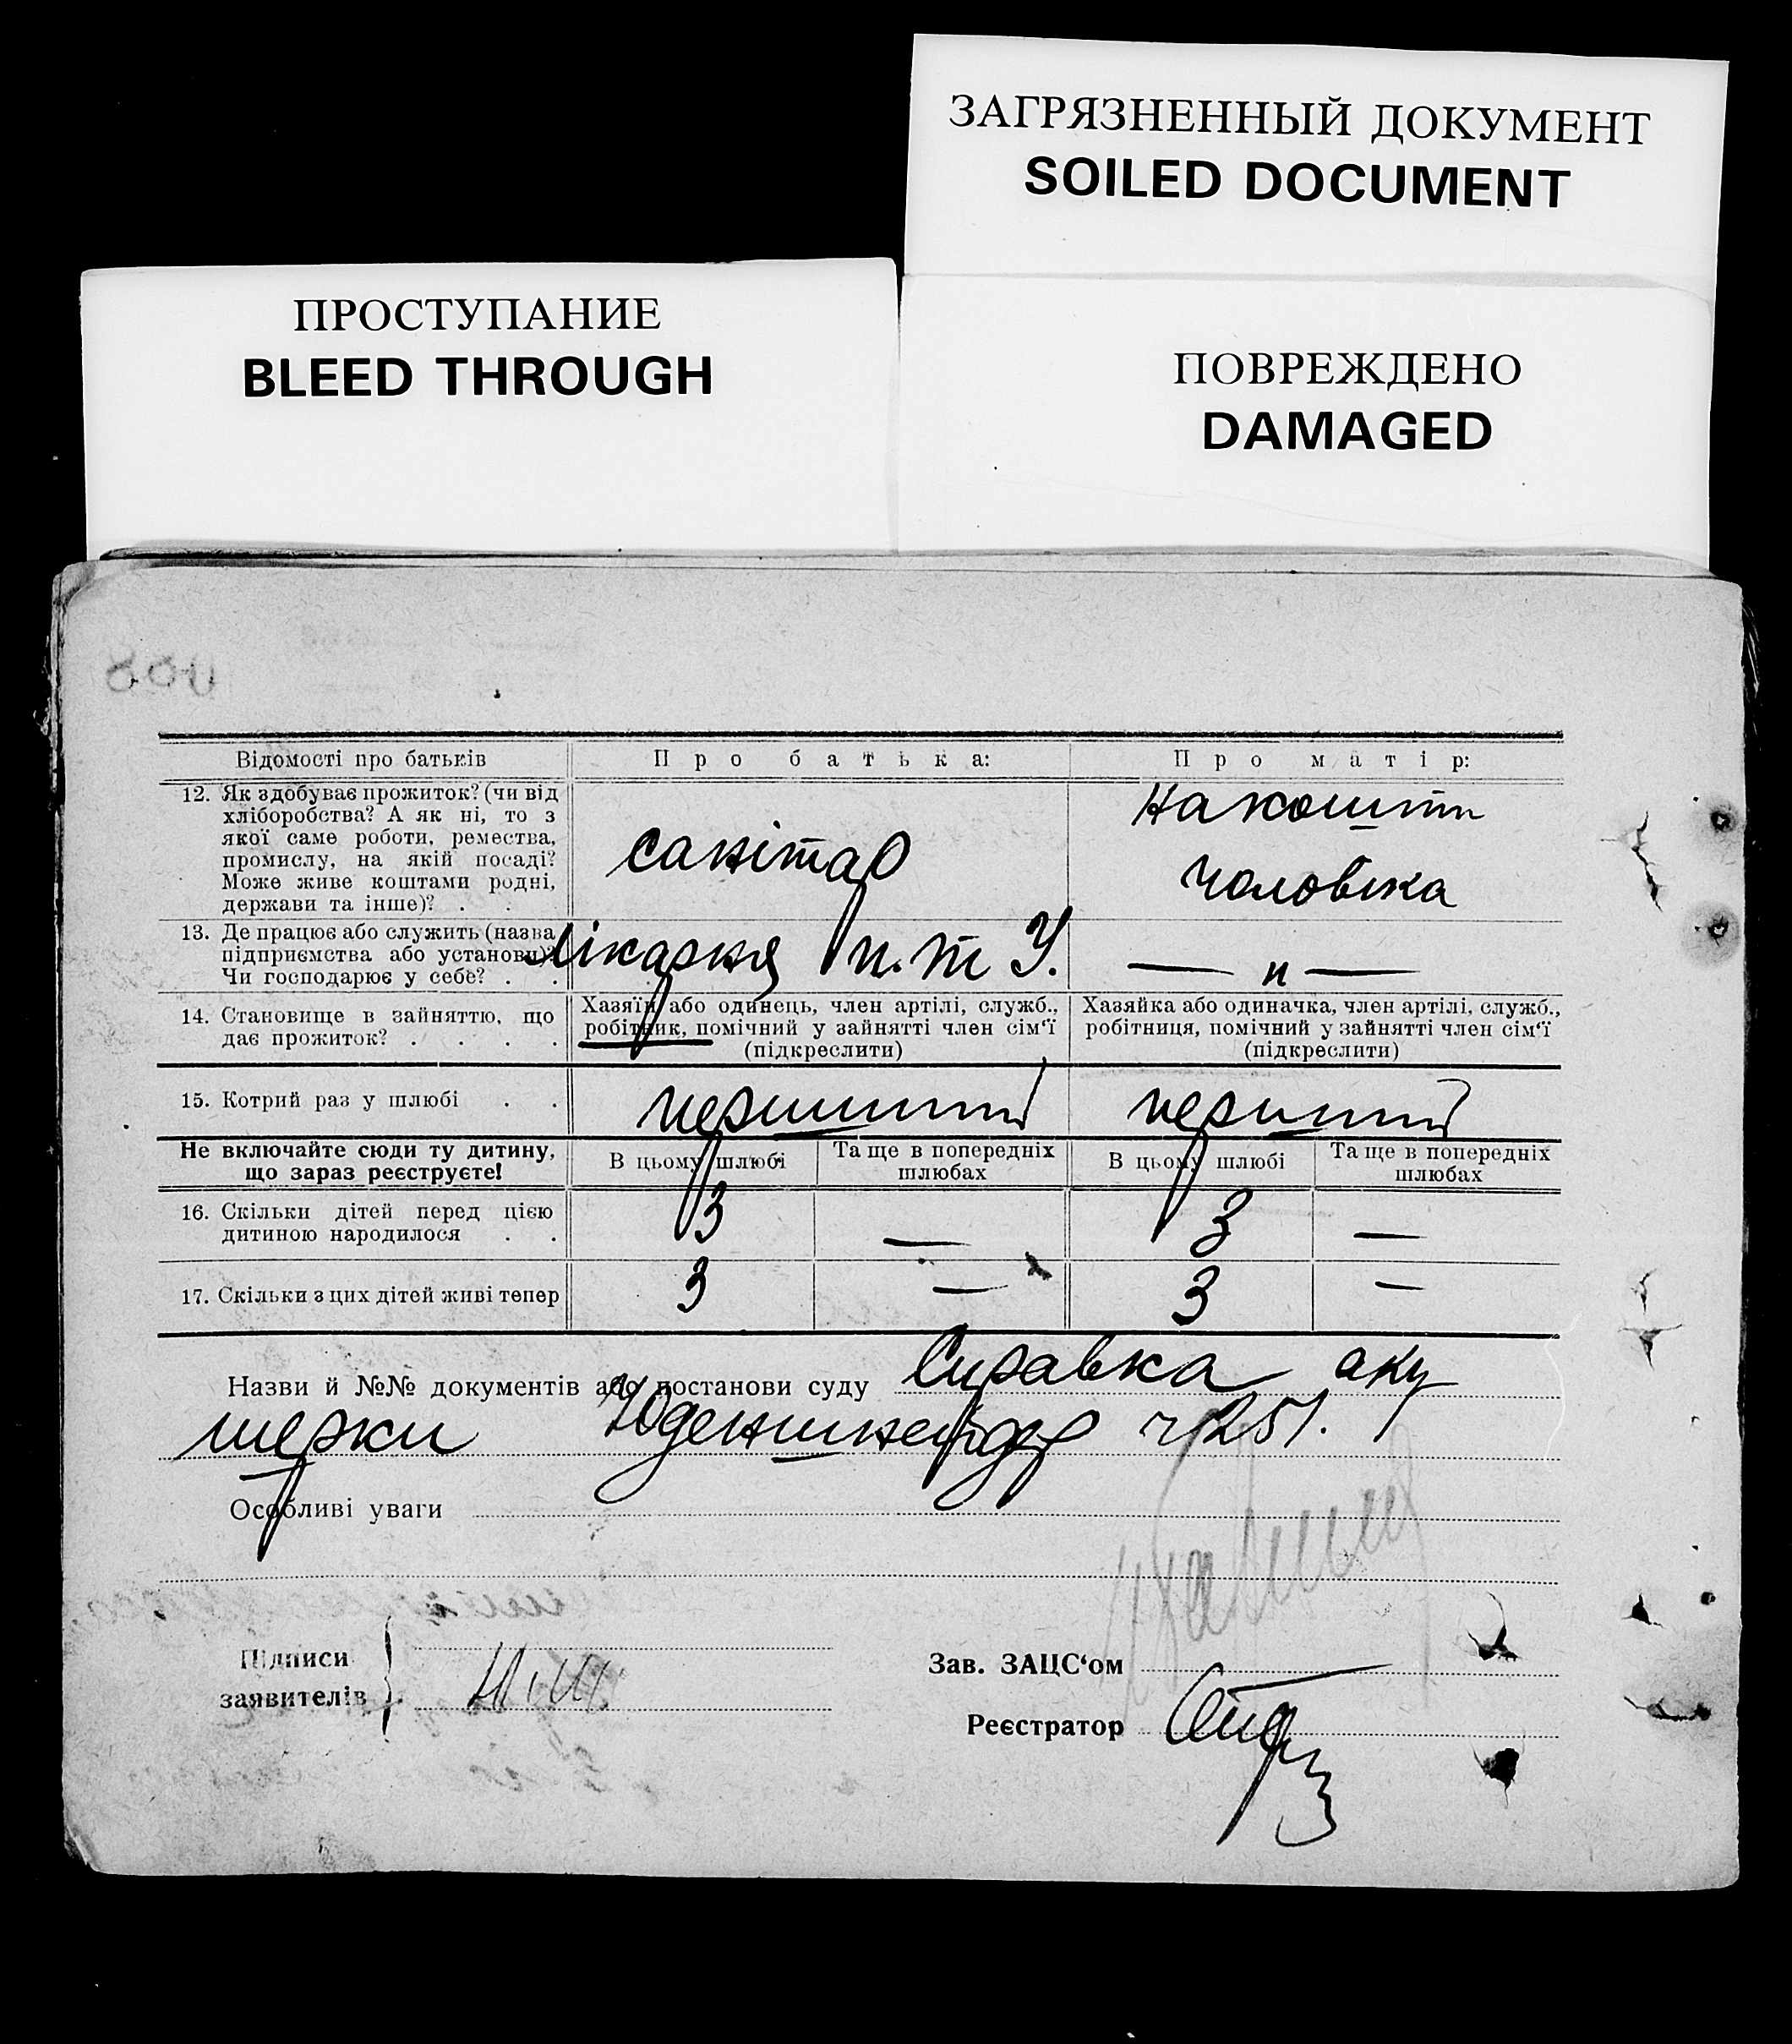 ЗАГРЯЗНЕННЫЙ ДОКУМЕНТ
SOILED DOCUMENT
ПРОСТУПАНИЕ
BLEED THROUGH
ПОВРЕЖДЕНО
DAMAGED
Відомості про батьків
Про батька:
Про матір:
12. Як здобуває прожиток? (чи від
хліборобства? А як ні, то з
якої саме роботи, ремества,
промислу, на якій посаді?
Може живе коштами родні,
держави та інше)? . .
санітар
на кошти
чоловіка
13. Де працює або служить (назва
підприємства або установи)?
Чи господарює у себе? . .
лікарня п. т У.
— п —
14. Становище в зайняттю, що
дає прожиток? . . . .
Хазяїн або одинець, член артілі, служб.,
робітник, помічний у зайнятті член сім‘ї
(підкреслити)
Хазяйка або одиначка, член артілі, служб.,
робітниця, помічний у зайнятті член сім‘ї
(підкреслити)
15. Котрий раз у шлюбі . .
перший
перший
Не включайте сюди ту дитину,
що зараз реєструєте!
В цьому шлюбі
Та ще в попередніх
шлюбах
В цьому шлюбі
Та ще в попередніх
шлюбах
16. Скільки дітей перед цією
дитиною народилося . .
3 — 3 —
17. Скільки з цих дітей живі тепер
3 — 3 —
Назви й №№ документів або постанови суду Справка аку
шерки ч 251.
Особливі уваги
Підписи
заявителів
Зав. ЗАЦС‘ом
Реєстратор